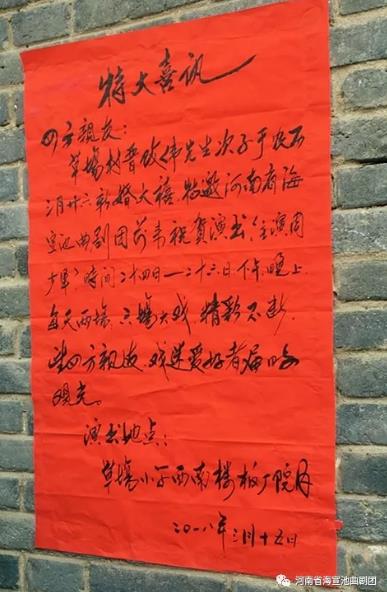 特大喜讯
四方親友：
草場村晋敀伟先生次子于农历
三月廿六新婚大禧，特邀河南省海
宣池曲剧团前来祝贺演出(主演周
少军)时间二十四日—二十六日，下午，晚上
每天两場，六場大戏，精彩不断，
望四方親友，戏迷爱好者届时
观光。
演出地点：
草場小学西南楼板厂院内
二〇一八年三月十五日
河南省海宣池曲剧团